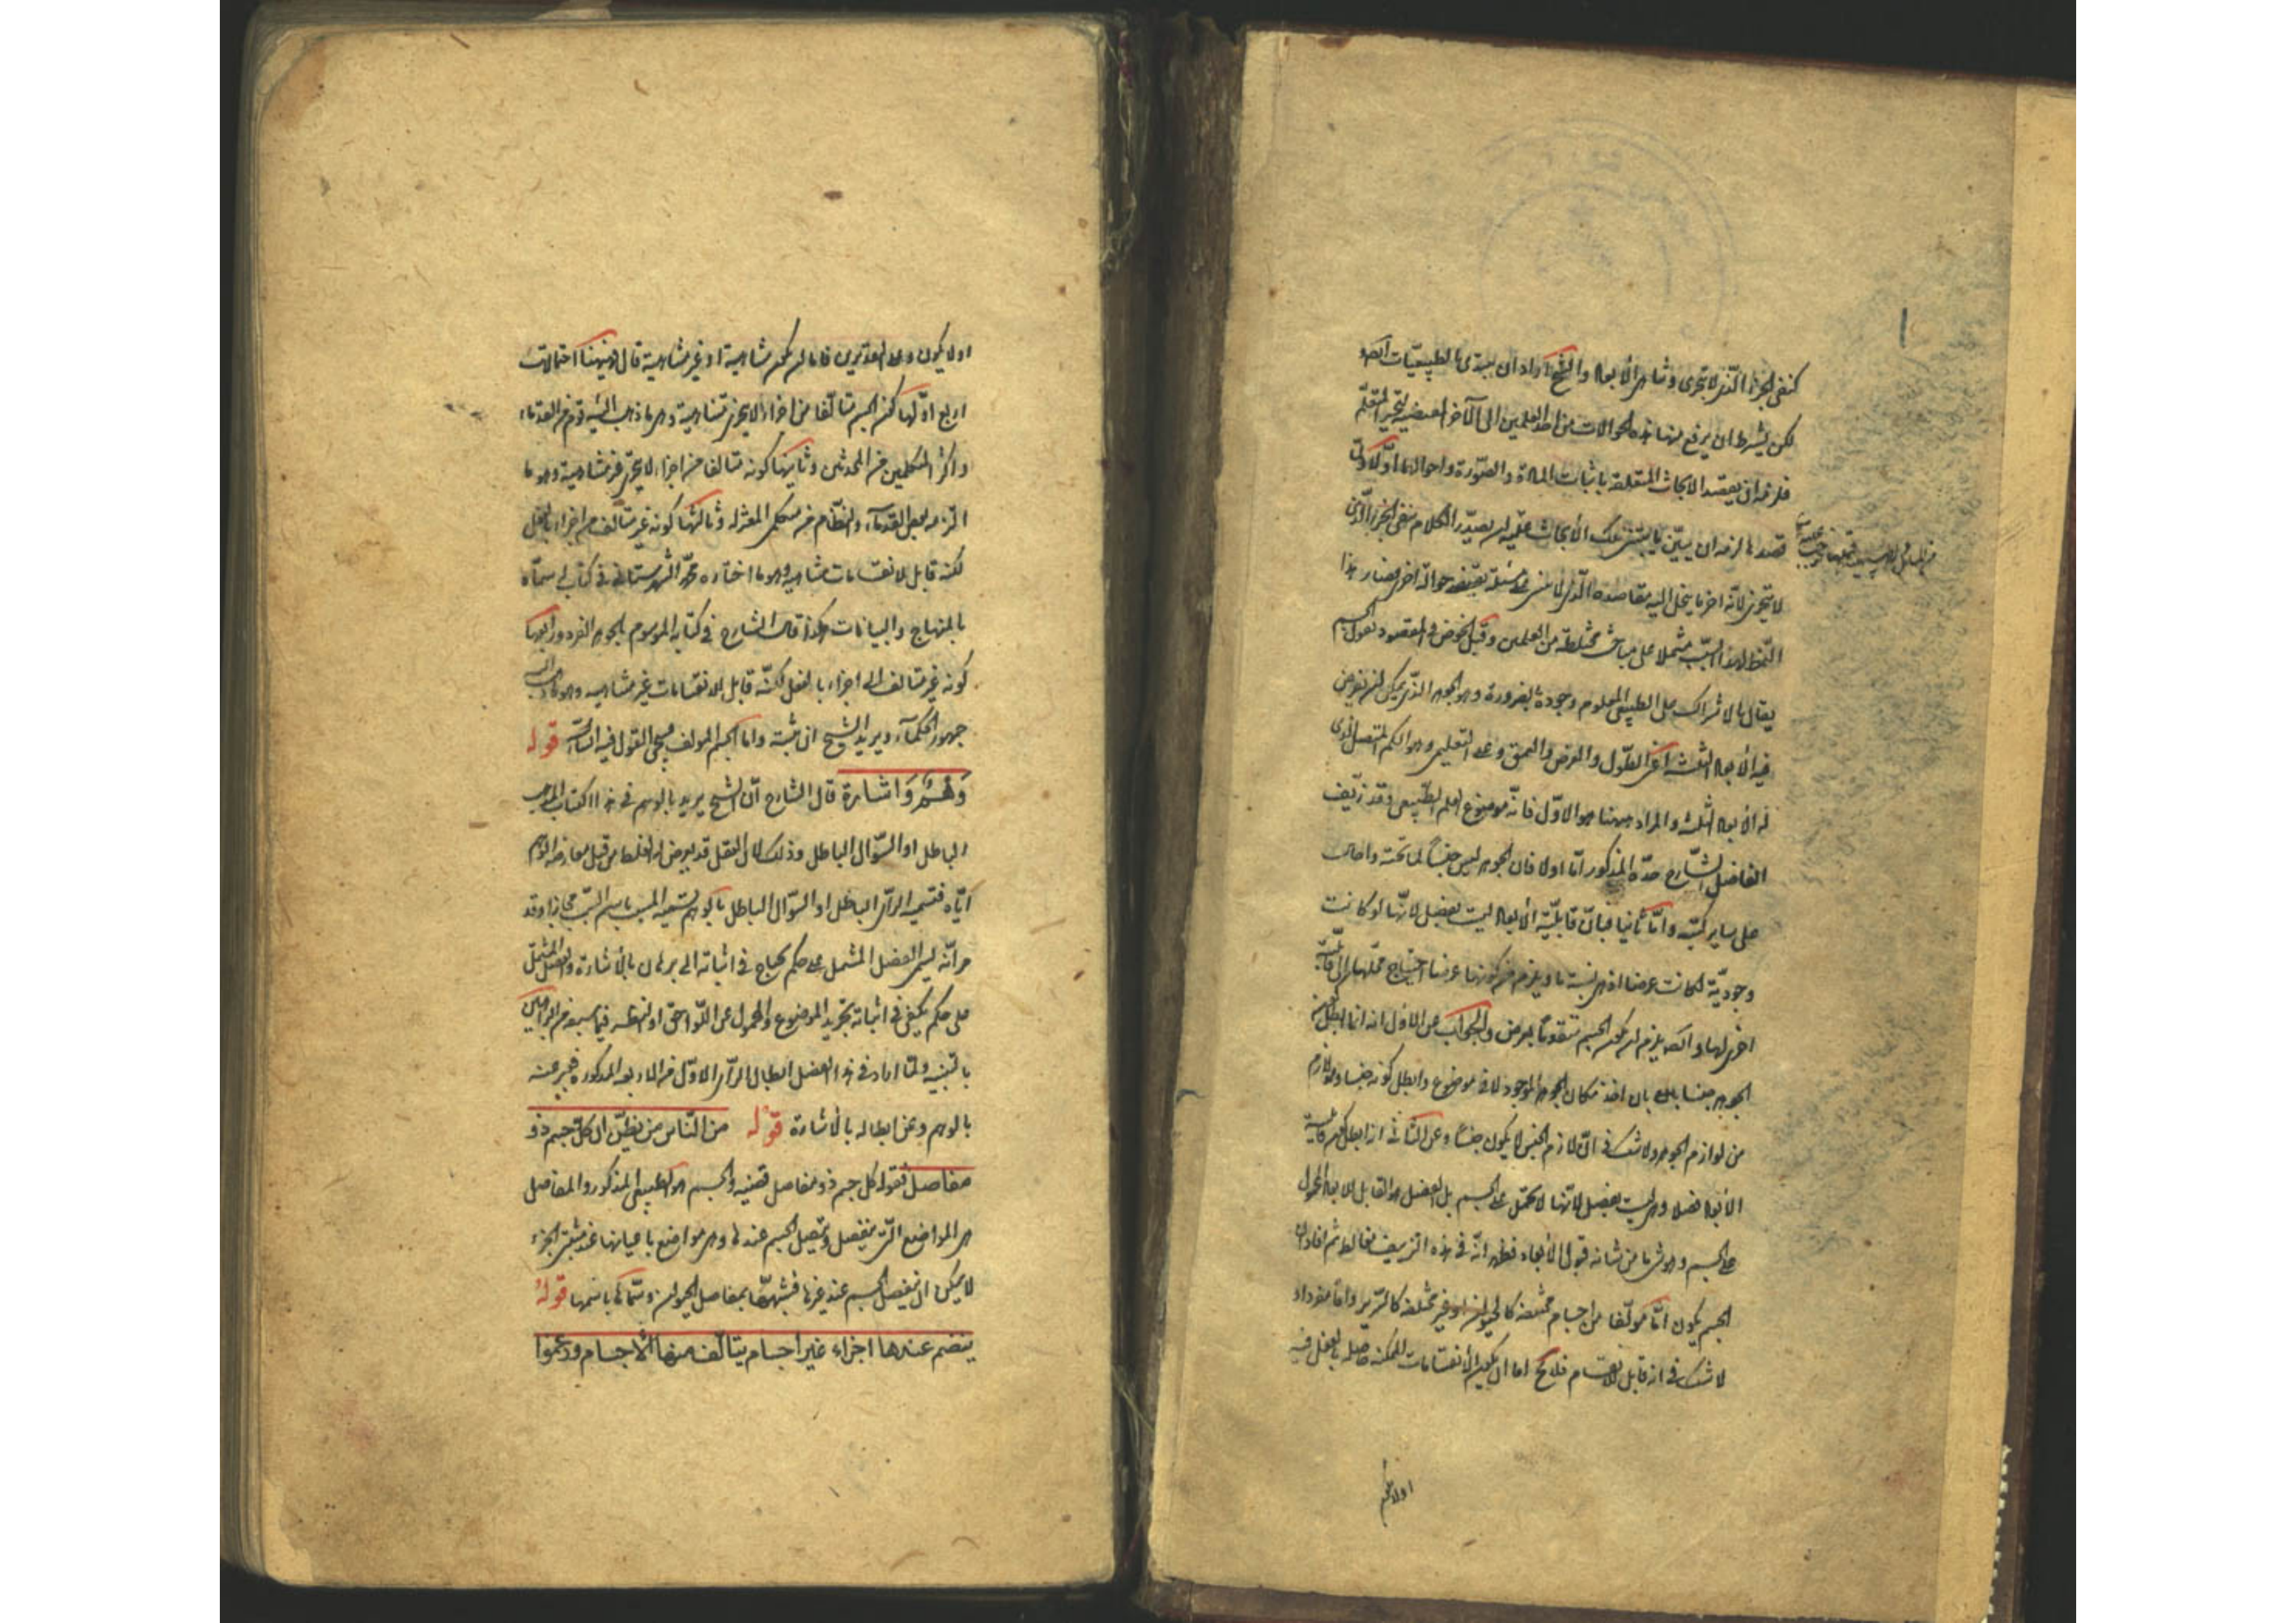 كنفى الجزء الذى لا يتجزى وتناهى الأبعاد والشيخ اراد ان يبتدى بالطبيعيات
لكن بشرط ان يرفع منها هذه الحوالات من احد العلمين الى الآخر المقتضية لتحير المتعلم
فلزمه ان يقصد الابحاث المتعلقة باثبات المادة والصورة واحوالهما اولا ولما
قصدها لزمه ان يبين ما يبتنى تلك الأبحاث عليه ان يصدر الكلام بنفى الجزء الذى
لا يتجزى لأنه اخر ما ينحل اليه مقاصده الذى لا يبتنى على مسئلة يقتضى حوالة اخرى فصار هذا
النمط لهذا السبب مشتملا على مباحث مختلطة من العلمين وقبل الخوض فى المقصود نقول الجسم
يقال بالاشتراك على الطبيعى المعلوم وجوده بالضرورة وهو الجوهر الذى يمكن ان يفرض
فيه الأبعاد الثلثة اعنى الطول والعرض والعمق وعلى التعليمى وهو الكم المتصل الذى
له الأبعاد الثلثة والمراد ههنا هو الاول فانه موضوع العلم الطبيعى وقد زيف
الفاضل الشارح حده المذكور اما اولا فان الجوهر ليس جنسا لما تحته واحال
على ساير كتبه واما ثانيا فبان قابلية الأبعاد ليست بفصل لانها لو كانت
وجودية لكانت عرضا اذ هى نسبة ما ويلزم من كونها عرضا احتياج محلها الى قابلية
اخرى لها وايضا يلزم ان يكون الجسم متقوما بعرض والجواب عن الاول انه انما ابطل كون
الجوهر جنسا بان اخذ مكان الجوهر الموجود لا فى موضوع وابطل كونه جنسا وهو لازم
من لوازم الجوهر ولا شك فى ان لازم الجنس لا يكون جنسا وعن الثانى انه ابطل كون قابلية
الأبعاد فصلا وهى ليست بفصل لأنها لا تحمل على الجسم بل الفصل هو القابل للابعاد المحمول
على الجسم وهو شئ ما من شانه قبول الأبعاد فظهر انه فى هذه التزييف مغالط ثم افاد ان
الجسم يكون اما مؤلفا من اجسام مختلفة كالحيوان او غير مختلفة كالسرير واما مفردا و
لا شك فى انه قابل للانقسام فلا يخ اما ان يكون الأنقسامات الممكنة حاصله بالفعل فيه
او لا يكون وعلى التقديرين فاما ان يكون متناهية او غير متناهية قال فههنا احتمالات
اربع اولها كون الجسم متألفا من اجزاء لا يتجزى متناهية وهو ما ذهب اليه قوم من القدماء
واكثر المتكلمين من المحدثين وثانيها كونه متالفا من اجزاء لا يتجزى غير متناهية وهو ما
التزمه بعض القدماء والنظام من متكلمى المعتزله وثالثها كونه غير متألف من اجزاء بالفعل
لكنه قابل لانقسامات متناهية وهو ما اختاره محمد الشهرستانى فى كتاب له سماه
بالمنهاج والبيانات هكذا قال الشارح فى كتابه الموسوم بالجوهر الفرد ورابعها
كونه غير متالف من اجزاء بالفعل لكنه قابل لانقسامات غير متناهيه وهو ما ذهب اليه
جمهور الحكماء ويريد الشيخ ان يثبته واما الجسم المولف فسيجئ القول فيه قوله
وهم واشارة قال الشارح ان الشيخ يريد بالوهم فى هذا الكتاب المذهب
الباطل او السؤال الباطل وذلك لان العقل قد يعرض له الغلط من قبل معارضة الوهم
اياه فتسمية الرأى الباطل او السؤال الباطل بالوهم تسمية المسبب باسم السبب مجازا وقد
مر انه يسمى الفصل المشتمل على حكم يحتاج فى اثباته الى برهان بالأشارة والفصل المشتمل
على حكم يكفى فى اثباته تجريد الموضوع والمحمول عن اللواحق او النظر فيما سبق من البراهين
بالتنبيه ولما اراد فى هذا الفصل ابطال الرأى الاول من الاربعه المذكوره فعبر عنه
بالوهم وعن ابطاله بالأشارة قوله من الناس من يظن ان كل جسم ذو
مفاصل فقوله كل جسم ذو مفاصل قضيه والجسم هو الطبيعى المذكور والمفاصل
هى المواضع التى ينفصل ويتصل الجسم عندها وهى مواضع باعيانها عند مثبتى الجزء
لا يمكن ان ينفصل الجسم عند غيرها فشبهها بمفاصل الحيوان وسماها باسمها قوله
ينضم عندها اجزاء غير اجسام يتألف منها الأجسام وزعموا